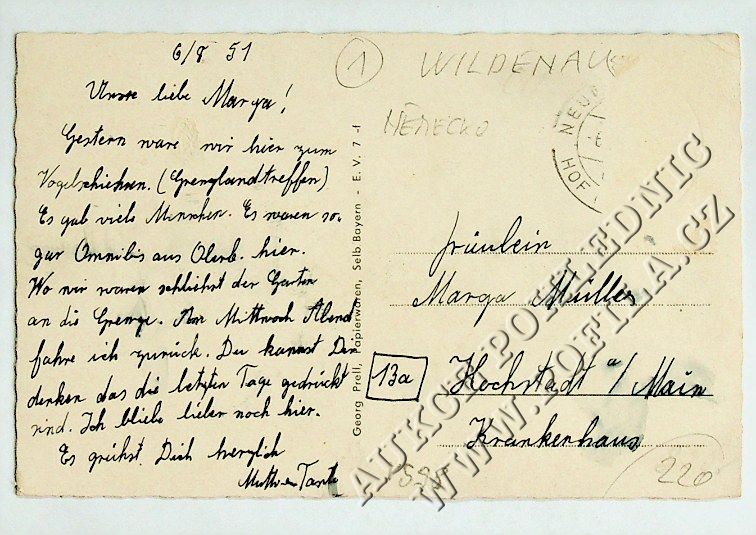 6/8 51
Unsre liebe Marga!
Gestern ware wir hier zum
Vogelschiehsen. (Grenzlandtreffen)
Es gab viele Menschen. Es waren so-
gar Omnibis aus Olerb. hier.
Wo wir waren schliehst der Garten
an die Grenze. Am Mittwoch Abend
fahre ich zurück. Du kannst Dir
denken das die letzten Tage gedrückt
sind. Ich bliebe lieber noch hier.
Es grühst Dich herzlich
Mutti u Tante
Georg Prell, Papierwaren, Selb Bayern - E. V. 7 -f
1 WILDENAU
NĚMECKO
HOF
Fräulein
Marga Müller
13a Hochstadt a/Main
Krankenhaus
220
AUKCE POHLEDNIC
WWW.POFILA.CZ